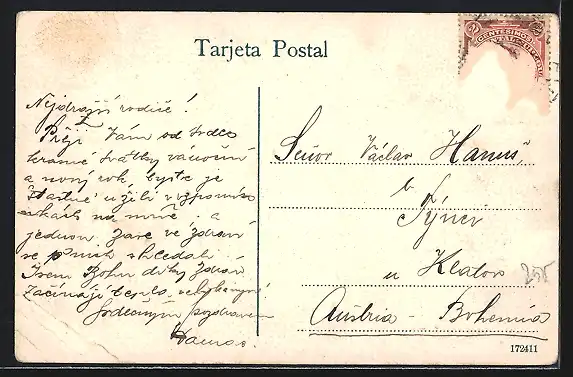 Tarjeta Postal
2 CENTESIMOS 2
Nejdražší rodiče!
Přeji Vám od srdce
krásné svátky vánoční
a nový rok, byste je
šťastně užili v vzpomín-
kách na mne a
jednou zase ve zdraví
se s hledali.
Jsem Bohu díky zdráv.
Začínají tepla
Srdečným pozdravem
Señor Václav Hanuš,
v
Týnci
u Klatov
255
Austria - Bohemia
172411